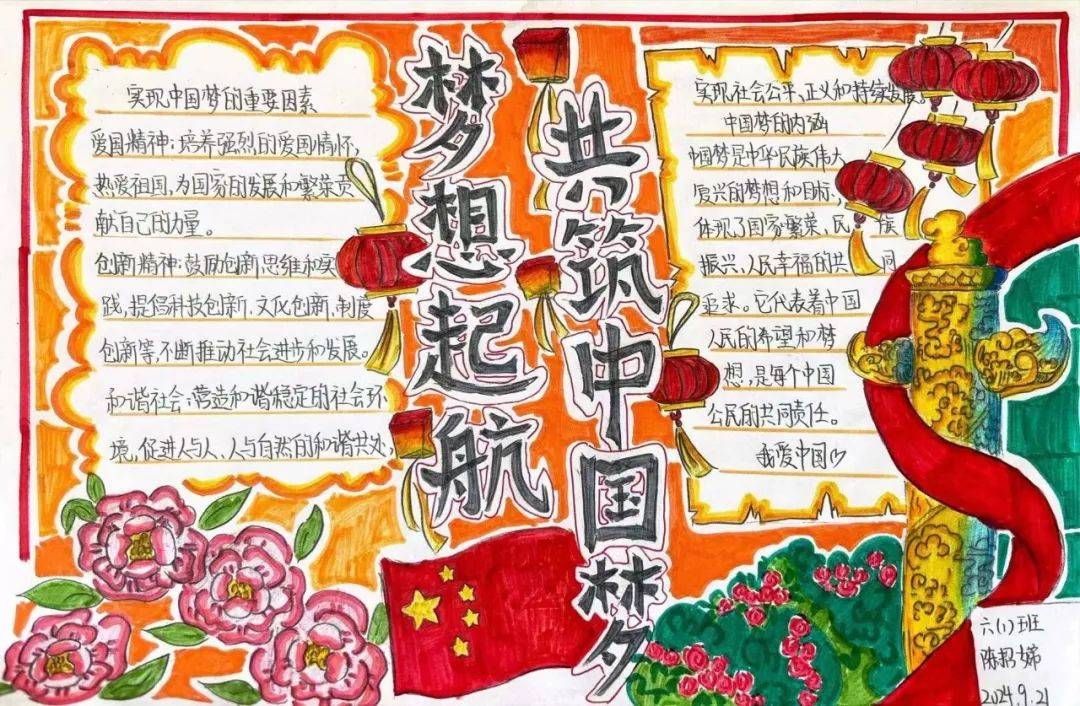 梦想起航
共筑中国梦
实现中国梦的重要因素
爱国精神:培养强烈的爱国情怀,
热爱祖国,为国家的发展和繁荣贡
献自己的力量。
创新精神:鼓励创新思维和实
践,提倡科技创新、文化创新、制度
创新等,不断推动社会进步和发展。
和谐社会:营造和谐稳定的社会环
境,促进人与人、人与自然的和谐共处,
实现社会公平、正义和持续发展。
中国梦的内涵
中国梦是中华民族伟大
复兴的梦想和目标,
体现了国家繁荣、民族
振兴、人民幸福的共同
追求。它代表着中国
人民的希望和梦
想,是每个中国
公民的共同责任。
我爱中国♡
六(1)班
陈招娣
2024.9.21